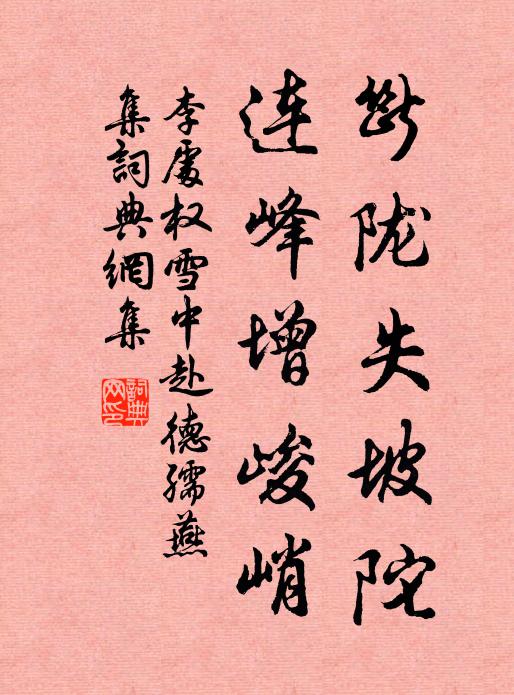 断陇失坡陀
连峰增峻峭
李處权雪中赴德孺燕
集詞典網集
詞典网印